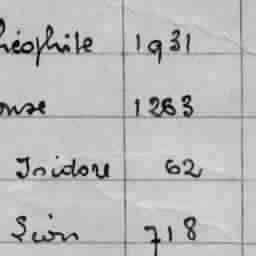 héophile 1931
onse 1263
Isidore 62
Léon 718